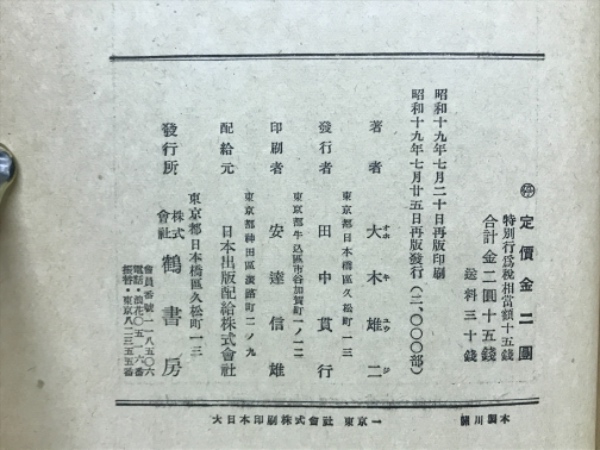 定價金二圓
特別行爲稅相當額十五錢
合計金二圓十五錢
送料三十錢
昭和十九年七月二十日再版印刷
昭和十九年七月廿五日再版發行(二、〇〇〇部)
著者 大木雄二
オホ キ ユウ ジ
東京都日本橋區久松町一三
發行者 田中貫行
東京都牛込區市谷加賀町一ノ一二
印刷者 安達信雄
東京都神田區淡路町二ノ九
配給元 日本出版配給株式會社
東京都日本橋區久松町一三
發行所 株式會社 鶴書房
會員番號一一八五〇六
電話・浪花〇五一六番
振替・東京八二三五五番
大日本印刷株式會社 東京一
川製本